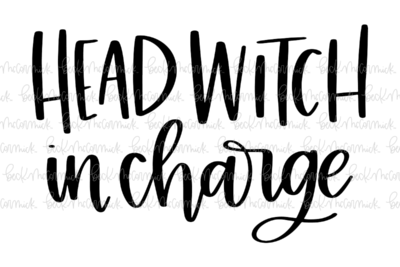 HEAD WITCH
in charge